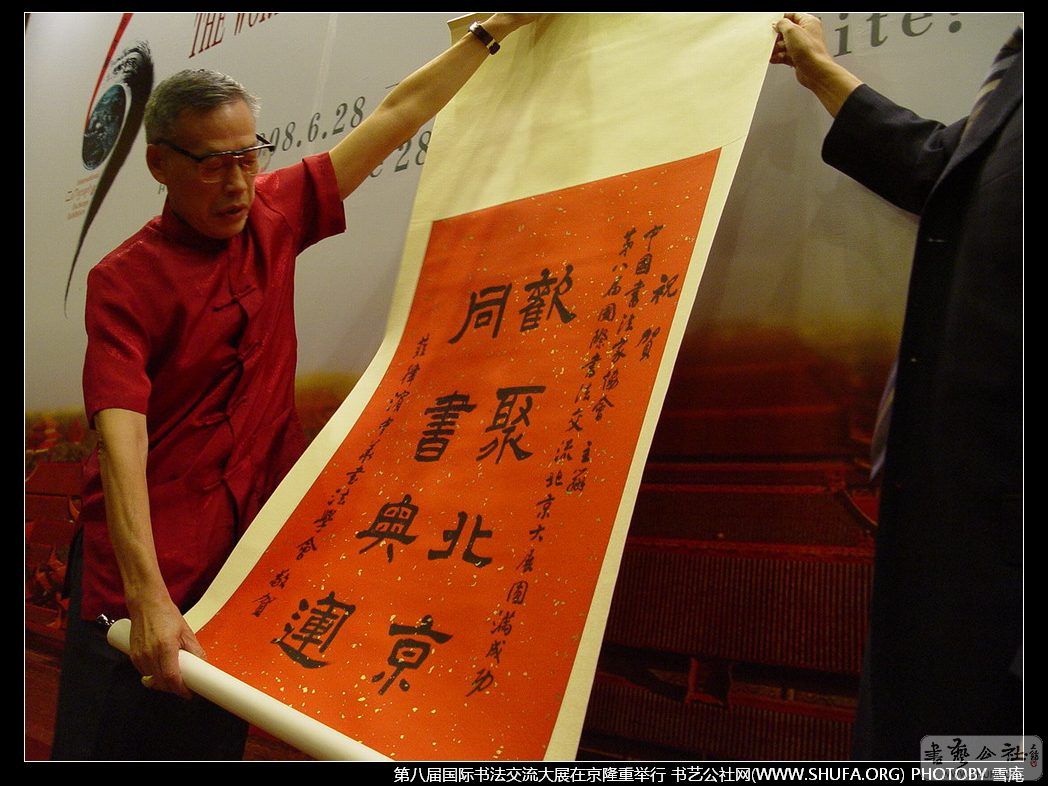 THE WORL
98.6.28
e 28
ite!
祝賀
中國書法家協會主辦
第八届國際書法交流北京大展圓滿成功
歡聚北京
同書興運
菲律濱中華書法學會 敬賀
書藝公社
第八届国际书法交流大展在京隆重举行 书艺公社网(WWW.SHUFA.ORG) PHOTOBY 雪庵